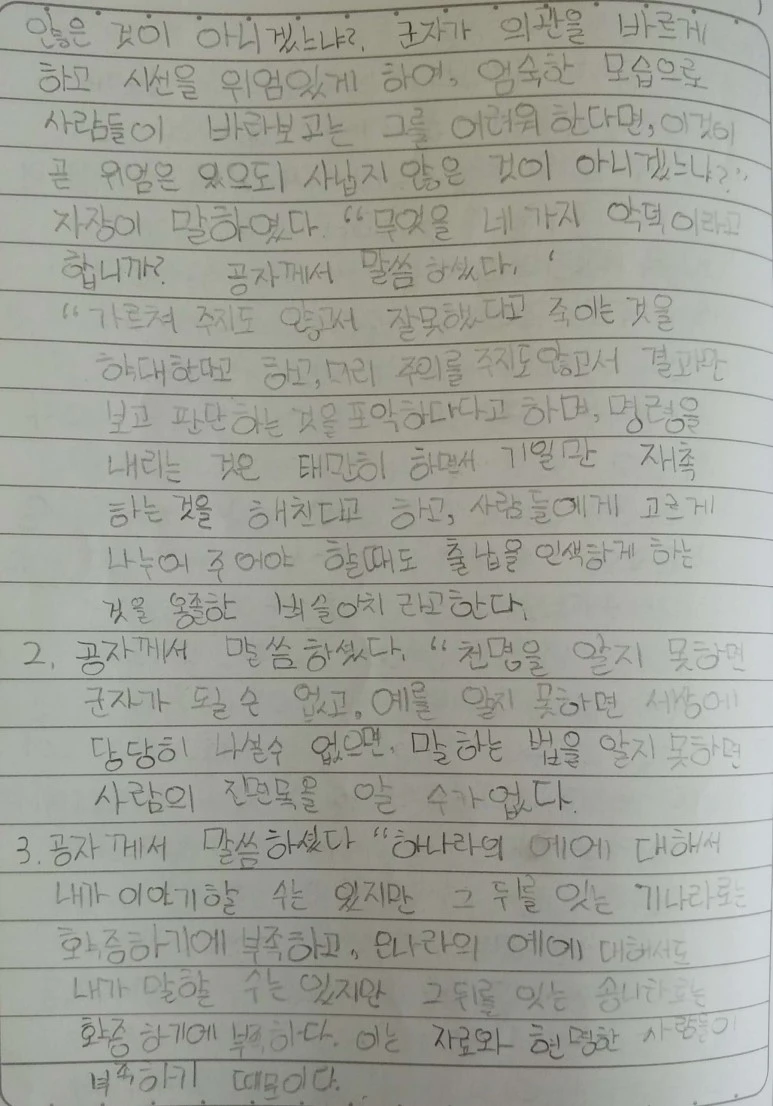 않은 것이 아니겠느냐?, 군자가 의관을 바르게
하고 시선을 위엄있게 하여, 엄숙한 모습으로
사람들이 바라보고는 그를 어려워 한다면, 이것이
곧 위엄은 있으되 사납지 않은 것이 아니겠느냐?"
자장이 말하였다. "무엇을 네가지 악덕이라고
합니까? 공자께서 말씀하셨다. '
"가르쳐 주지도 않고서 잘못했다고 죽이는 것을
학대한다고 하고, 미리 주의를 주지도 않고서 결과만
보고 판단하는 것을 포악하다다고 하며, 명령을
내리는 것은 태만히 하면서 기일만 재촉
하는 것을 해친다고 하고, 사람들에게 고르게
나누어 주어야 할때도 출납을 인색하게 하는
것을 옹졸한 벼슬아치라고한다.
2. 공자께서 말씀하셨다. "천명을 알지 못하면
군자가 될 수 없고, 예를 알지 못하면 세상에
당당히 나설수 없으면. 말하는 법을 알지 못하면
사람의 진면목을 알 수가 없다.
3. 공자께서 말씀하셨다 "하나라의 예에 대해서
내가 이야기할 수는 있지만 그 뒤를 잇는 기나라로는
확증하기에 부족하고, 은나라의 예에 대해서도
내가 말할 수는 있지만 그 뒤를 잇는 송나라로는
확증 하기에 부족하다. 이는 자료와 현명한 사람들이
부족하기 때문이다.